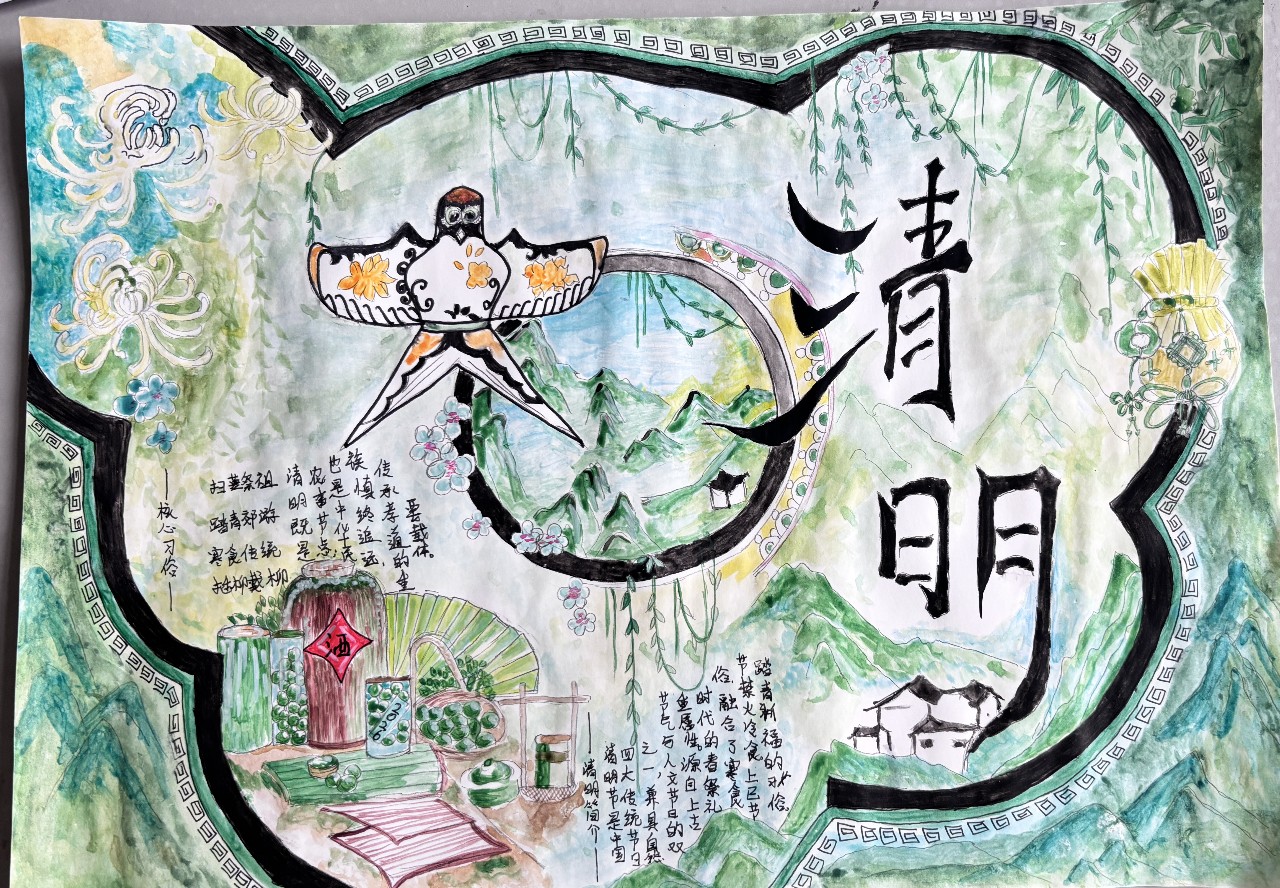 清明
核心习俗
扫墓祭祖
踏青郊游
寒食传统
插柳戴柳
清明既是
农事节点,
也是中华民
族慎终追远,
传承孝道的重
要载体。
酒
2026
清明简介
清明节是中国
四大传统节日
之一,兼具自然
节气与人文节日的双
重属性,源自上古
时代的春祭礼
俗,融合了寒食
节禁火冷食、上巳节
踏青祈福的习俗。